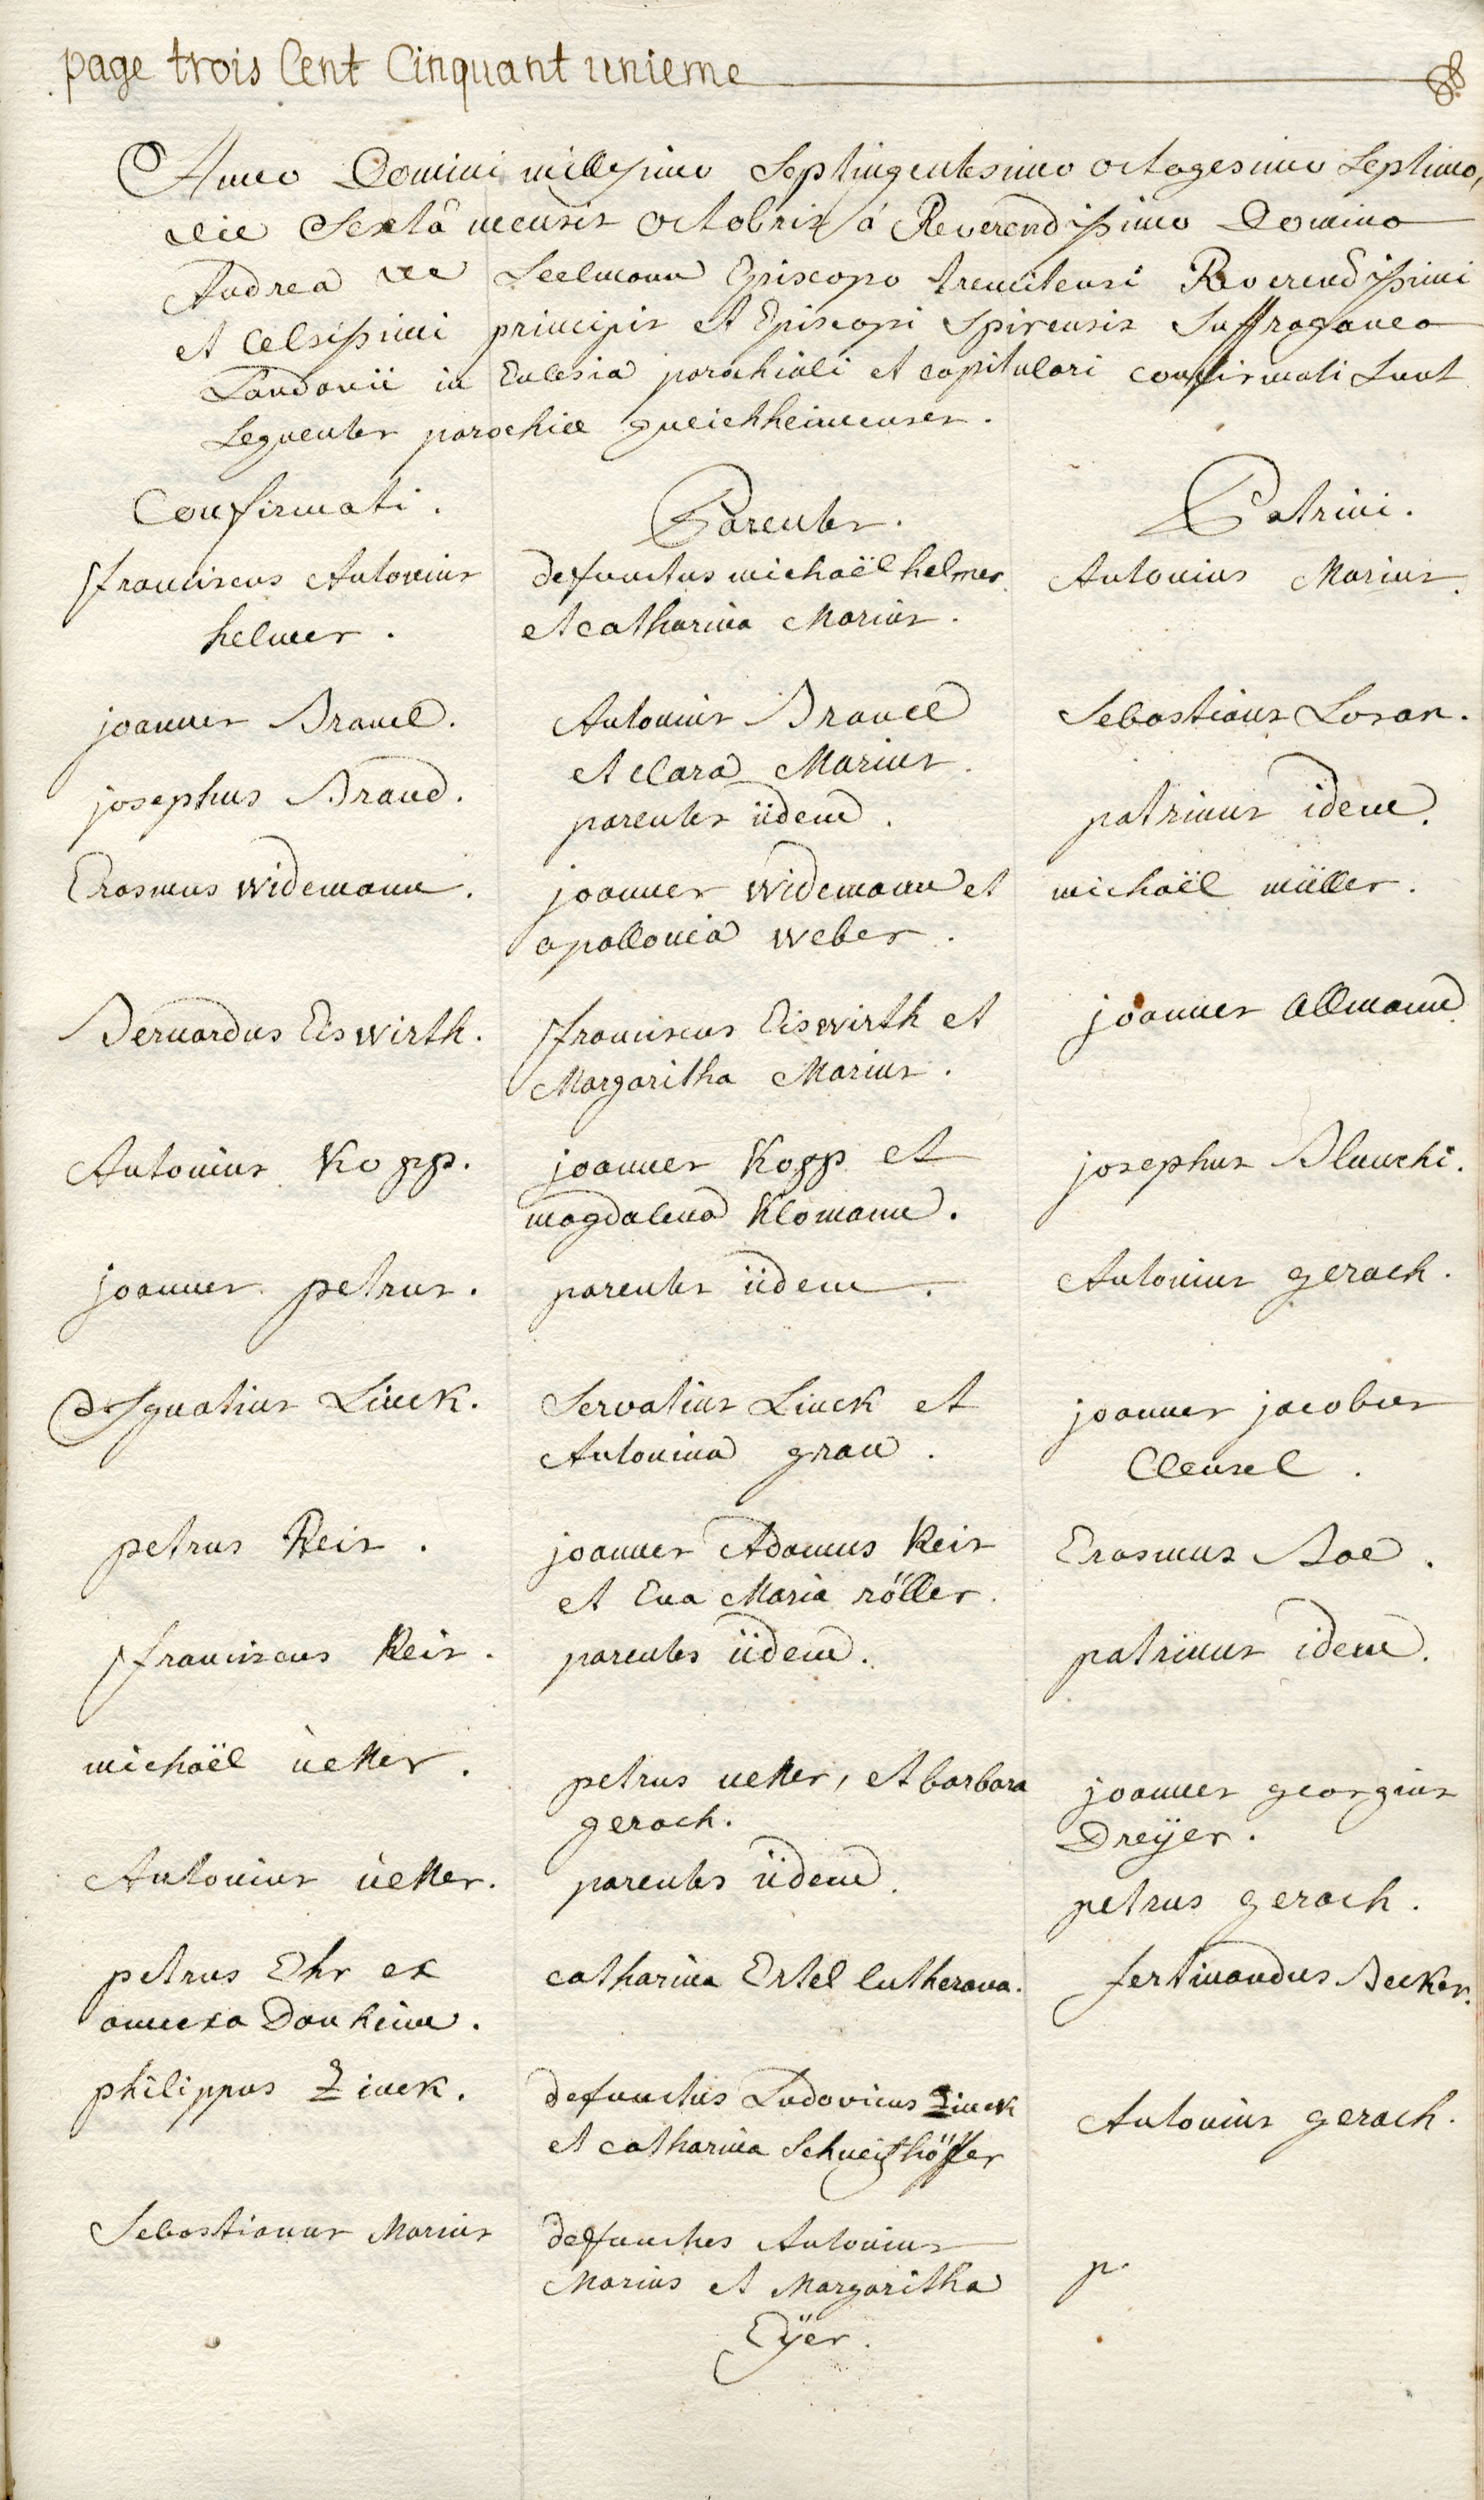 page trois Cent Cinquant unieme
Anno Domini millesimo Septingentesimo octogesimo Septimo,
die Sextâ mensis octobris á Reverendissimo Domino
Andrea de Seelmann Episcopo tremitensi Reverendissimi
et Celsissimi principis et Episcopi Spirensis Suffraganeo
Landavii in Eclesia parochiali et capitulari confirmati Sunt
Sequentes parochiæ queichheimenses.
Confirmati. Parentes. Patrini.
franciscus Antonius defunctus michaël helmer Antonius Marius.
helmer. et catharina Marius.
joannes Brand. Antonius Brand Sebastianus Loran.
et clara Marius.
josephus Brand. parentes iidem. patrinus idem.
Erasmus widemann. joannes widemann et michaël müller.
apollonia weber.
Bernardus Eiswirth. franciscus Eiswirth et joannes Allmand
Margaritha Marius.
Antonius Kopp. joannes Kopp et josephus Blanchi.
magdalena Klomann.
joannes petrus. parentes iidem. Antonius gerach.
Ignatius Linck. Servatius Linck et joannes jacobus
Antonina grau. Clensel.
petrus Reis. joannes Adamus Reis Erasmus Bae.
et Eva Maria röller.
franciscus Reis. parentes iidem. patrinus idem.
michaël üetter. petrus uetter, et barbara joannes georgius
gerach. Dreÿer.
Antonius üetter. parentes iidem. petrus gerach.
petrus Ehr ex catharina Ertel lutherana. fertinandus Becker.
annexa Danheim.
philippus Zinck. defunctus Ludovicus Zinck Antonius gerach.
et catharina Schweizhöffer
Sebastianus Marius defunctus Antonius p.
Marius et Margaritha
Eÿer.